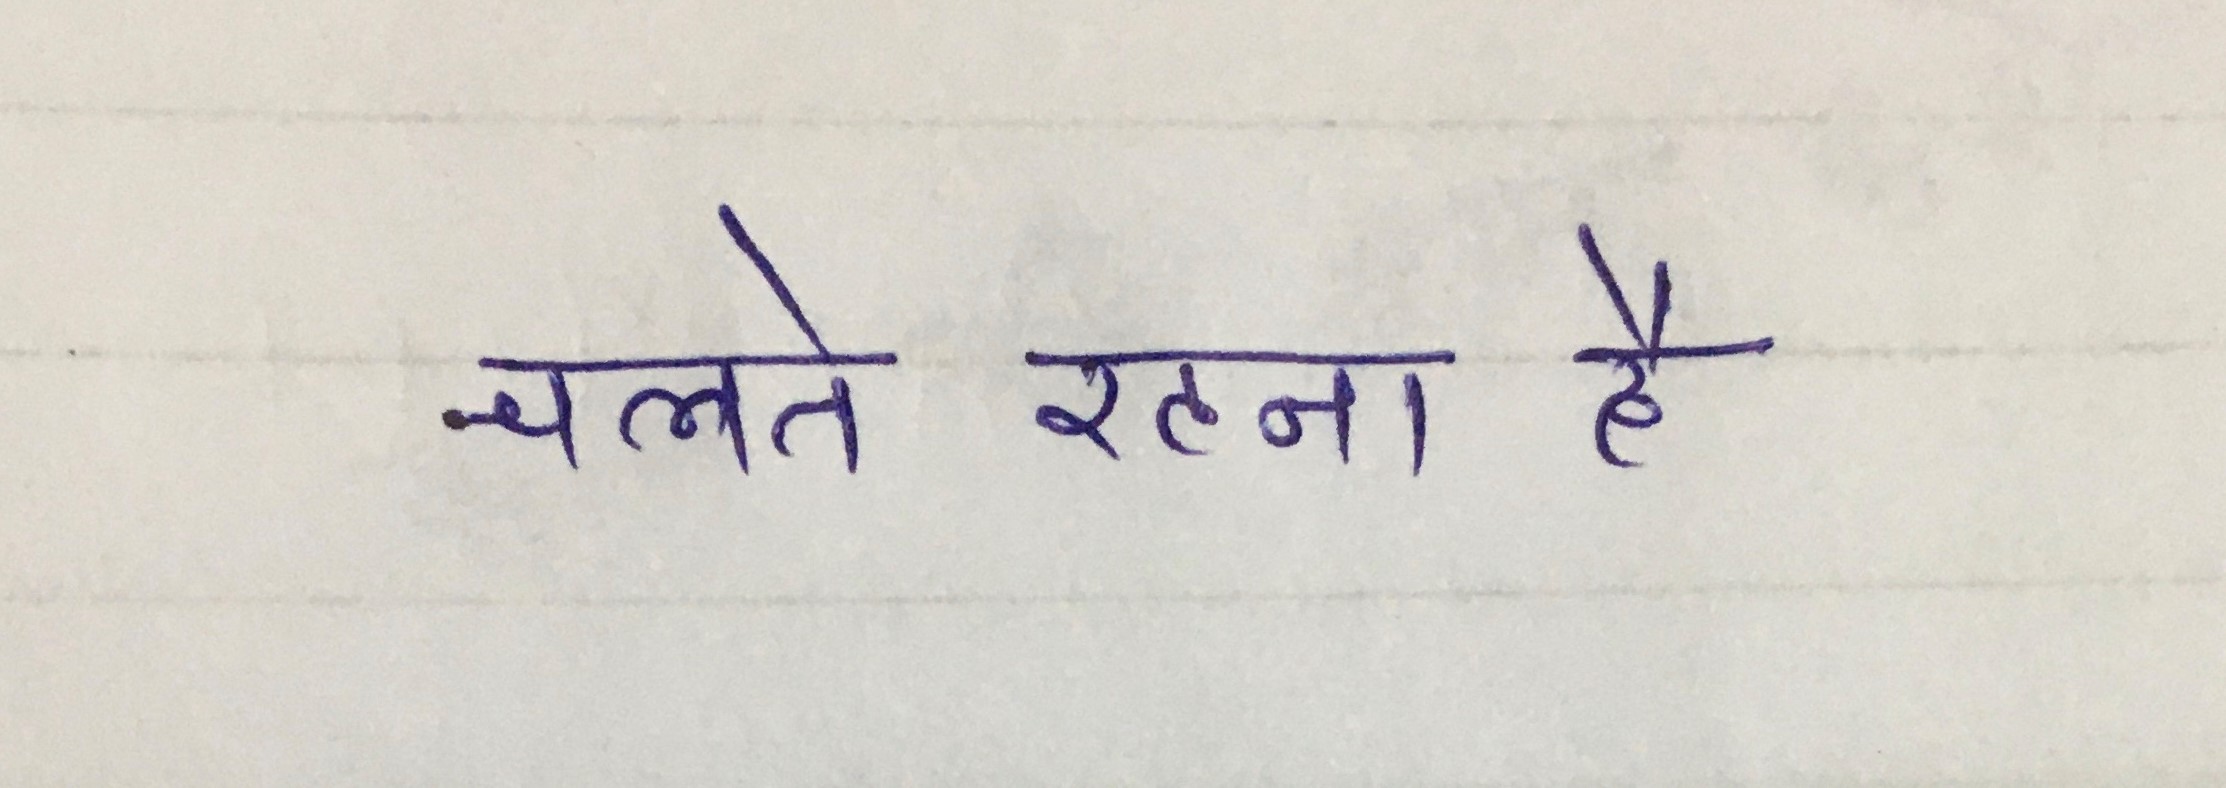 चलते रहना है